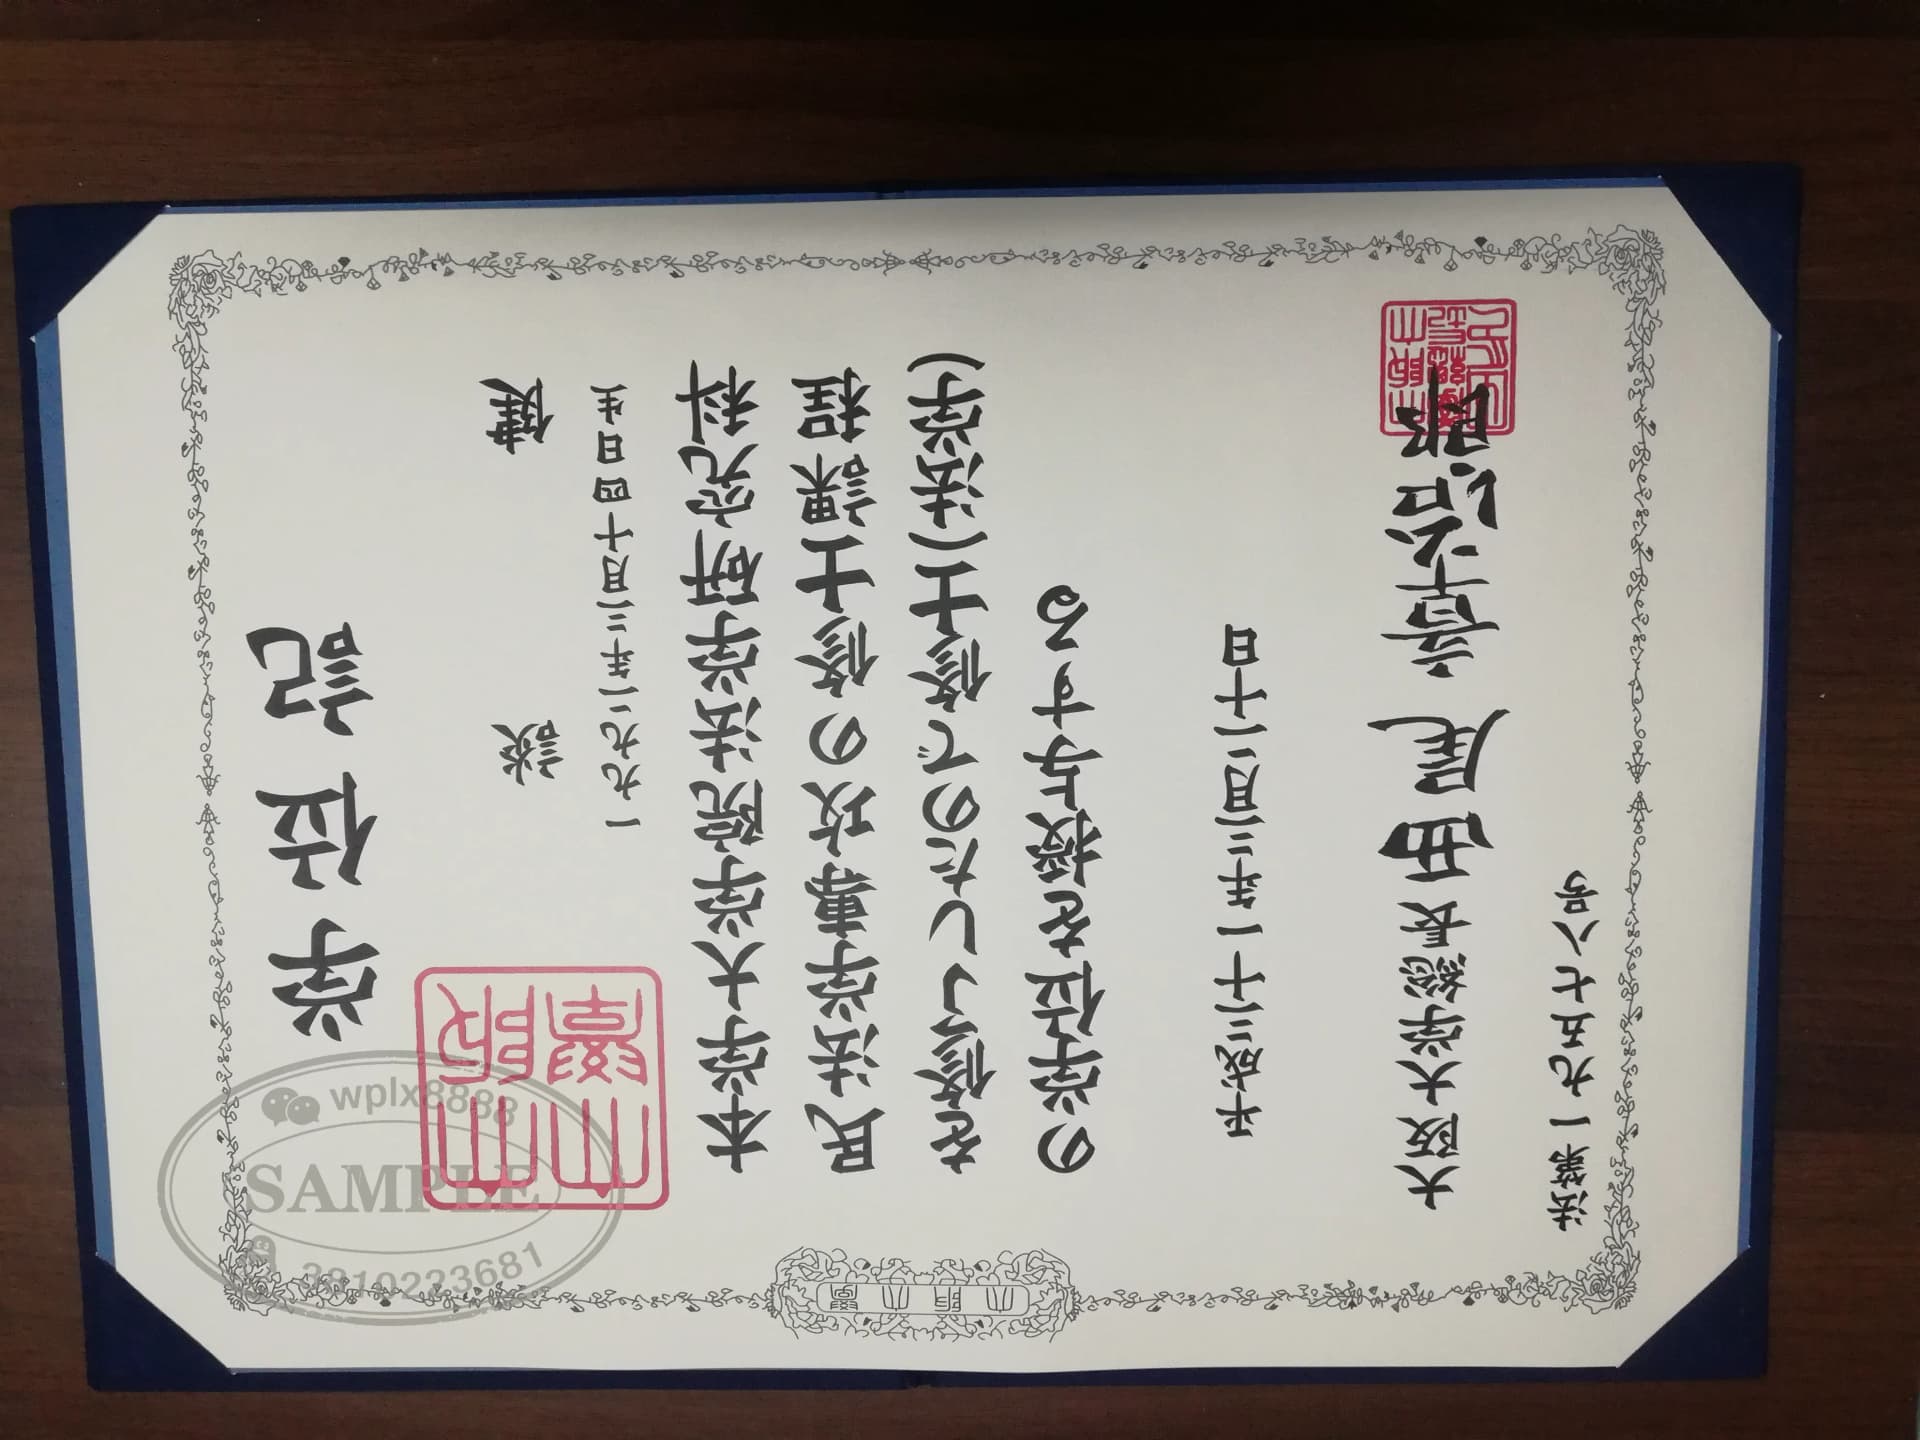 学位記
談 健
一九九二年三月十四日生
本学大学院法学研究科
民法学専攻の修士課程
を修了したので修士(法学)
の学位を授与する
平成三十一年三月二十日
大阪大学総長 西尾章治郎
法第一九五七八号
大阪大學
大阪大學
wplx8888
SAMPLE
3810223681